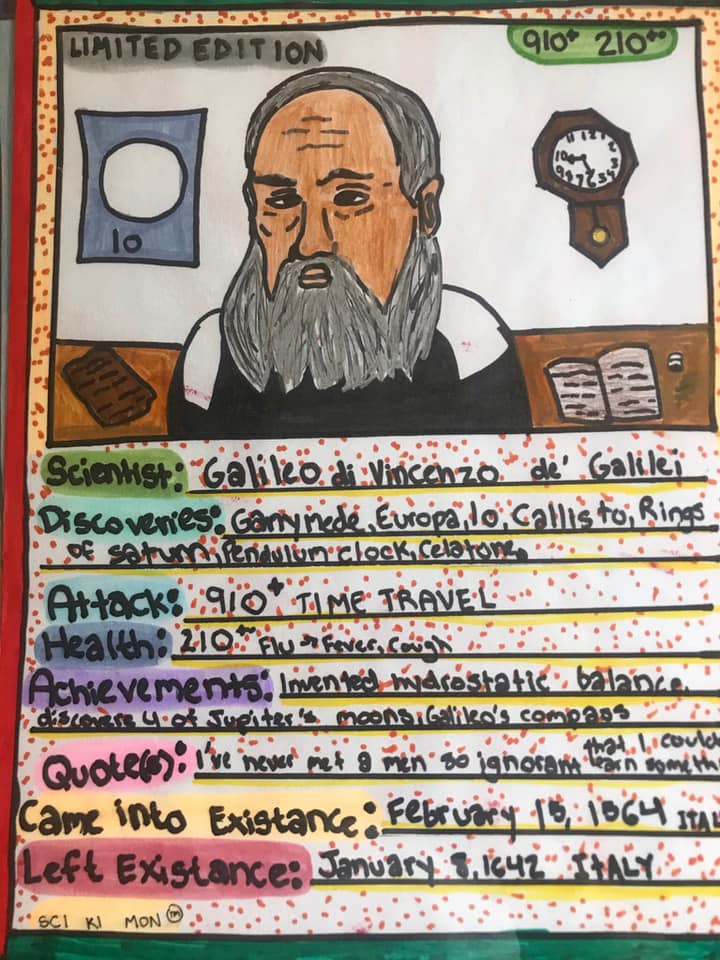 LIMITED EDITION
910+ 210++
Io
11 12 1
10
Scientist: Galileo di Vincenzo de' Galilei
Discoveries: Ganymede, Europa, Io, Callisto, Rings
of saturn, Pendulum clock, Celatone,
Attack: 910+ TIME TRAVEL
Health: 210++ Flu → Fever, Cough
Achievements: Invented hydrostatic balance,
discovere 4 of Jupiter's moons, Galileo's compass
Quote(s): I've never met a men so ignorant that I could
learn someth
Came into Existance: February 15, 1564 ITAL
Left Existance: January 8, 1642 ITALY
SCI KI MON TM